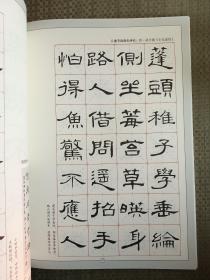 蓬頭稚子學垂綸
側坐莓苔草暎身
路人借問遙招手
怕得魚驚不應人